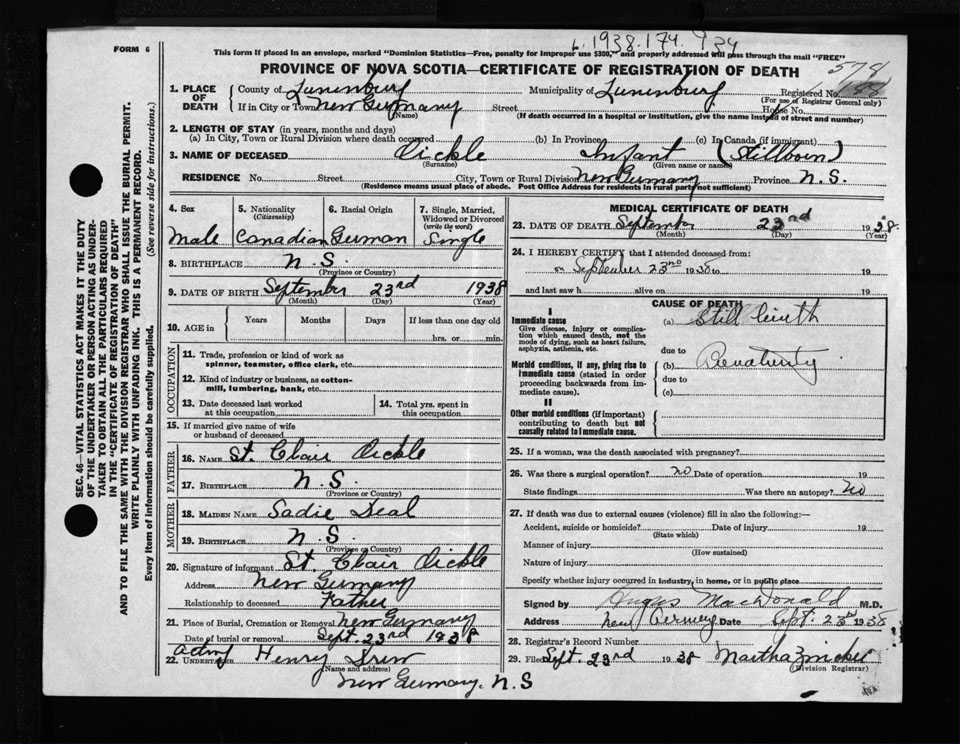 FORM 6
This form if placed in an envelope, marked "Dominion Statistics—Free, penalty for improper use $300," and properly addressed will pass through the mail "FREE"
1938.174.
PROVINCE OF NOVA SCOTIA—CERTIFICATE OF REGISTRATION OF DEATH
578
1. PLACE OF DEATH County of Lunenburg Municipality of Lunenburg Registered No.
(For use of Registrar General only)
If in City or Town New Germany Street House No.
(Name) (If death occurred in a hospital or institution, give the name instead of street and number)
2. LENGTH OF STAY (in years, months and days)
(a) In City, Town or Rural Division where death occurred (b) In Province (c) In Canada (if immigrant)
3. NAME OF DECEASED Dickle Infant (Stillborn)
(Surname) (Given name or names)
RESIDENCE No. Street City, Town or Rural Division New Germany Province N.S.
(Residence means usual place of abode. Post Office Address for residents in rural parts not sufficient)
4. Sex 5. Nationality (Citizenship) 6. Racial Origin 7. Single, Married, Widowed or Divorced (write the word)
Male Canadian German Single
8. BIRTHPLACE N.S.
(Province or Country)
9. DATE OF BIRTH September 23rd 1938
(Month) (Day) (Year)
10. AGE in Years Months Days If less than one day old
hrs. or min.
OCCUPATION
11. Trade, profession or kind of work as spinner, teamster, office clerk, etc.
12. Kind of industry or business, as cotton-mill, lumbering, bank, etc.
13. Date deceased last worked at this occupation
14. Total yrs. spent in this occupation
15. If married give name of wife or husband of deceased
FATHER
16. NAME St. Clair Dickle
17. BIRTHPLACE N.S.
(Province or Country)
MOTHER
18. MAIDEN NAME Sadie Deal
19. BIRTHPLACE N.S.
(Province or Country)
20. Signature of informant St. Clair Dickle
Address New Germany
Relationship to deceased Father
21. Place of Burial, Cremation or Removal New Germany
Date of burial or removal Sept. 23rd 1938
22. Acting UNDERTAKER Henry
(Name and address)
New Germany, N.S
MEDICAL CERTIFICATE OF DEATH
23. DATE OF DEATH September 23rd 1938
(Month) (Day) (Year)
24. I HEREBY CERTIFY that I attended deceased from:
on September 23rd 1938 to 19
and last saw h alive on 19
CAUSE OF DEATH
I
Immediate cause (a) Still birth
Give disease, injury or complication which caused death, not the mode of dying, such as heart failure, asphyxia, asthenia, etc.
due to
Morbid conditions, if any, giving rise to immediate cause (stated in order proceeding backwards from immediate cause).
(b) Prematurity
due to
(c)
II
Other morbid conditions (if important) contributing to death but not causally related to immediate cause.
25. If a woman, was the death associated with pregnancy?
26. Was there a surgical operation? no Date of operation 19
State findings Was there an autopsy? no
27. If death was due to external causes (violence) fill in also the following:—
Accident, suicide or homicide? Date of injury 19
(State which)
Manner of injury
(How sustained)
Nature of injury
Specify whether injury occurred in industry, in home, or in public place
Signed by Angus MacDonald M.D.
Address New Germany Date Sept. 23rd 1938
28. Registrar's Record Number
29. Filed Sept. 23rd 1938 Martha
(Division Registrar)
SEC. 46—VITAL STATISTICS ACT MAKES IT THE DUTY
OF THE UNDERTAKER OR PERSON ACTING AS UNDER-
TAKER TO OBTAIN ALL THE PARTICULARS REQUIRED
IN THE "CERTIFICATE OF REGISTRATION OF DEATH"
AND TO FILE THE SAME WITH THE DIVISION REGISTRAR WHO SHALL ISSUE THE BURIAL PERMIT.
WRITE PLAINLY WITH UNFADING INK. THIS IS A PERMANENT RECORD.
Every item of information should be carefully supplied. (See reverse side for instructions.)